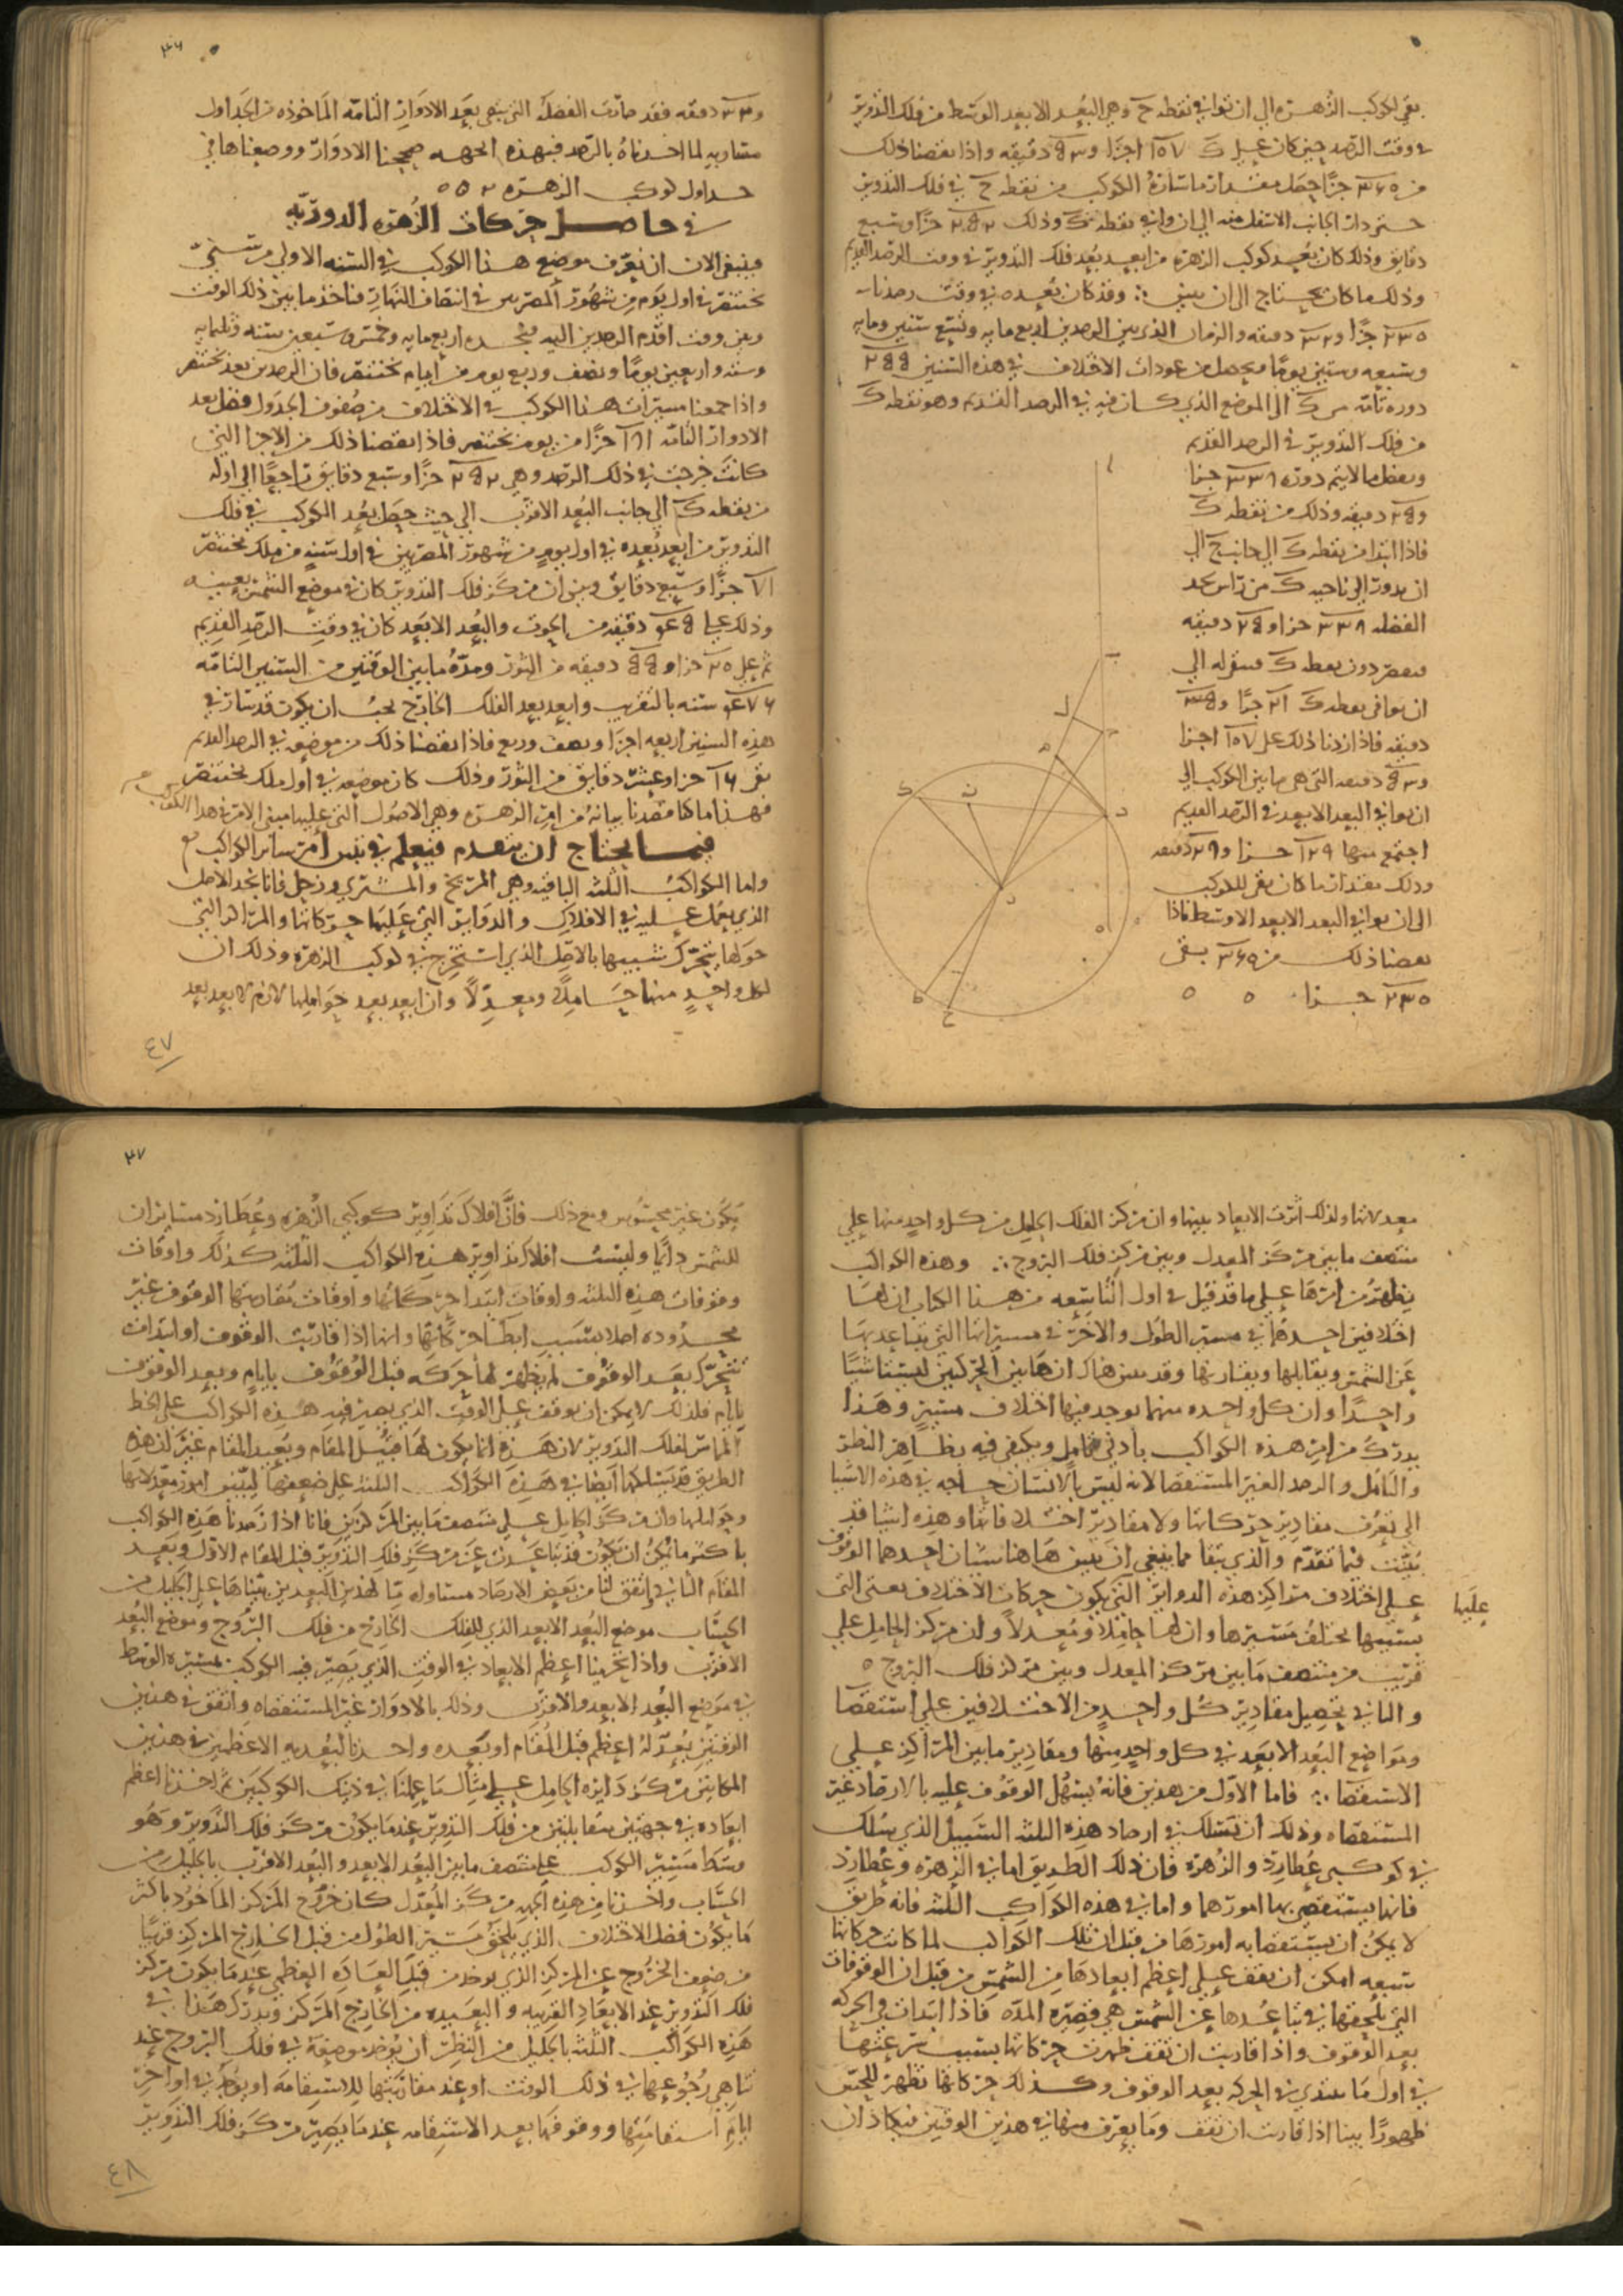 بقى لكوكب الزهرة الى ان توافى نقطة ح وهى البعد الابعد الوسط من فلك التدوير
فى وقت الرصد حين كان على ك ١٥٧ اجزا و دقيقه واذا نقصنا ذلك
من ٣٦٠ جزا حصل مقدار ما سارة الكوكب من نقطة ح فى فلك التدوير
دقايق وذلك كان بعد كوكب الزهرة من ابعد بعد فلك التدوير فى وقت الرصد القديم
وذلك ما كان يحتاج الى ان يبين ∴ وقد كان بعده فى وقت رصدنا
٢٣٠ جزا و دقيقه والزمان الذى بين الرصدين اربع مايه وتسع سنين ومايه
وسبعه وستين يوما ويحصل من عودات الاختلاف فى هذه السنين
دوره تامه من ك الى الموضع الذى كان فيه فى الرصد القديم وهو نقطة ك
من فلك التدوير فى الرصد القديم
ويفضل ما لا يتم دورة ٣٣٨ جزا
دقيقه وذلك من نقطة ك
فاذا ابتدا من نقطة ك الى جانب ح الى
ان يدور الى ناحية ك من راس
الفضله ٣٣٨ جزا دقيقه
فيقصر دون نقطة ك فبقى له الى
ان يوافى نقطة ك ٢١ جزا
دقيقه فاذا زدنا ذلك على ١٥٧ اجزا
دقيقه التى هى ما بين الكوكب الى
ان يوافى البعد الابعد فى الرصد القديم
اجتمع منها ١٢٩ جزا دقيقه
وذلك مقدار ما كان بقى للكوكب
الى ان يوافى البعد الابعد الاوسط فاذا
نقصنا ذلك من ٣٦٠ بقى
٢٣٠ جزا ٥ ٥
٣٦
دقيقه فقد صارت الفضله التى تبقى بعد الادوار التامه الماخوذه من الجداول
مساويه لما اخذناه بالرصد فبهذه الجهه صححنا الادوار ووضعناها فى
جداول كوكب الزهره
فى حاصل حركات الزهره الدوريه
فينبغى الان ان نعرف موضع هذا الكوكب فى السنه الاولى من سنى
بختنصر فى اول يوم من شهور المصريين فى انتصاف النهار فناخذ ما بين ذلك الوقت
وبين وقت اقدم الرصدين اليه فنجده اربع مايه وخمس وسبعين سنه وثلثمايه
وسته واربعين يوما ونصف وربع يوم من ايام بختنصر فان الرصدين بعد بختنصر
واذا جمعنا مسيرات هذا الكوكب فى الاختلاف من صفوف الجدول فضل بعد
الادوار التامه ١٨١ جزا من يوم بختنصر فاذا نقصنا ذلك من الاجزا التى
كانت خرجت فى ذلك الرصد وهى جزا وسبع دقايق راجعا الى اوله
من نقطة ك الى جانب البعد الاقرب الى حيث حصل بعد الكوكب فى فلك
التدوير من ابعد بعده فى اول يوم من شهور المصريين فى اول سنه من ملك بختنصر
٧١ جزا وسبع دقايق وبين ان مركز فلك التدوير كان فى موضع الشمس بعينه
وذلك على دقيقه من الحوت والبعد الابعد كان فى وقت الرصد القديم
ثم على ٢٥ جزا و دقيقه من الثور ومدة ما بين الوقتين من السنين التامه
سنه بالتقريب وابعد بعد الفلك الخارج يجب ان يكون قد سار فى
هذه السنين اربعه اجزا ونصف وربع فاذا نقصنا ذلك من موضعه فى الرصد القديم
بقى ١٦ جزا وعشر دقايق من الثور وذلك كان موضعه فى اول ملك بختنصر
فهذا ما كنا قصدنا بيانه من امر الزهره وهى الاصول التى عليها مبنى الامر فى هذا الكوكب
فيما يحتاج ان يتقدم فيعلم فى تبين امر ساير الكواكب
واما الكواكب الثلثه الباقيه وهى المريخ والمشترى وزحل فانا نجد الاصل
الذى يعمل عليه فى الافلاك والدواير التى عليها حركاتها والمراكز التى
حولها يتحرك شبيها بالاصل الذى استخرج فى كوكب الزهره وذلك ان
لكل واحد منها حاملا ومعدلا وان ابعد بعد حواملها لازم لابعد بعد
٤٧
معدلاتها ولذلك اثرت الابعاد بينها وان مركز الفلك الحامل من كل واحد منها على
منتصف ما بين مركز المعدل وبين مركز فلك البروج ∴ وهذه الكواكب
يظهر من امرها على ما قد قيل فى اول التاسعه من هذا الكتاب ان لها
اختلافين احدهما فى مسير الطول والاخر فى مسيراتها التى تتباعد بها
عن الشمس ويقابلها ويقارنها وقد تبين هناك ان هاتين الحركتين ليستا شيا
واحدا وان كل واحده منهما يوجد فيها اختلاف متبين وهذا
يدرك من امر هذه الكواكب بادنى تامل ويكتفى فيه بظاهر النظر
والتامل والرصد الغير المستقصا لانه ليس بالانسان حاجه فى هذه الاشيا
الى تعرف مقادير حركاتها ولا مقادير اختلافاتها وهذه اشيا قد
بينت فيما تقدم والذى بقا مما ينبغى ان يبين هاهنا شيان احدهما الوقوف
عليها
على اختلاف مراكز هذه الدواير التى يكون حركات الاختلاف يعنى التى
بسببها تختلف مسيرها وان لها حاملا ومعدلا وان مركز الحامل على
قريب من منتصف ما بين مركز المعدل وبين مركز فلك البروج ٥
والثانى تحصيل مقادير كل واحد من الاختلافين على استقصا
ومواضع البعد الابعد فى كل واحد منها ومقادير ما بين المراكز على
الاستقصا ∴ فاما الاول من هذين فانه يسهل الوقوف عليه بالارصاد غير
المستقصاه وذلك ان تسلك فى ارصاد هذه الثلثه السبيل الذى سلك
فى كوكبى عطارد والزهره فان ذلك الطريق اما فى الزهره وعطارد
فانها يستقصى بها امورهما واما فى هذه الكواكب الثلثه فانه طريق
لا يمكن ان يستقصا به امورها من قبل ان تلك الكواكب لما كانت حركاتها
تتبعه امكن ان نقف على اعظم ابعادها من الشمس من قبل ان الوقوفات
التى تلحقها فى تباعدها عن الشمس هى قصيره المده فاذا ابتدات فى الحركه
بعد الوقوف واذا قاربت ان تقف ظهرت حركاتها بسبب سرعتها
فى اول ما تبتدى فى الحركه بعد الوقوف وكذلك حركاتها تظهر للحس
ظهورا بينا اذا قاربت ان تقف وما يعرف منها فى هذين الوقتين فيكاد ان
٣٧
يكون غير محسوس ومع ذلك فان افلاك تداوير كوكبى الزهره وعطارد مسايران
للشمس دايما وليست افلاك تداوير هذه الكواكب الثلثه كذلك واوقات
وقوفات هذه الثلثه واوقات ابتدا حركاتها واوقات مقاربتها الوقوف غير
محدوده اصلا بسبب ابطا حركاتها وانها اذا قاربت الوقوف او ابتدات
تتحرك بعد الوقوف لم يظهر لها حركه قبل الوقوف بايام وبعد الوقوف
بايام فلذلك لا يمكن ان يوقف على الوقت الذى يصير فيه هذه الكواكب على الخط
المماس لفلك التدوير لان هذه انما يكون لها قبيل المقام وبعيد المقام غير ان هذه
الطريق قد يسلكها ايضا فى هذه الكواكب الثلثه على ضعفها لتبين امور معدلاتها
وحواملها وان مركز الحامل على منتصف ما بين المركزين فانا اذا رصدنا هذه الكواكب
باكثر ما يمكن ان يكون قد تباعدت عن مركز فلك التدوير قبل المقام الاول وبعد
المقام الثانى واتفق لنا من بعض الارصاد متساويه لهذين البعدين بيناها على الجليل من
الحساب موضع البعد الابعد الذى للفلك الخارج من فلك البروج وموضع البعد
الاقرب واذا تحرينا اعظم الابعاد فى الوقت الذى يصير فيه الكوكب بمسيره الوسط
فى موضع البعد الابعد والاقرب وذلك بالادوار غير المستقصاه واتفق فى هذين
الوقتين بعد له اعظم قبل المقام او بعده واخذنا لبعديه الاعظمين فى هذين
المكانين مركز دايره الحامل على مثال ما عملنا فى ذينك الكوكبين ثم اخذنا اعظم
ابعاده فى جهتين متقابلتين من فلك التدوير عندما يكون مركز فلك التدوير وهو
وسط مسير الكوكب على منتصف ما بين البعد الابعد والبعد الاقرب بالجليل من
الحساب واخذنا من هذه الجهه مركز المعدل كان خروج المركز الماخوذ باكثر
ما يكون فضل الاختلاف الذى يلحق مسير الطول من قبل الخارج المركز قريبا
من ضعف الخروج عن المركز الذى يوخذ من قبل العظمى عندما يكون مركز
فلك التدوير عند الابعاد القريبه والبعيده من الخارج المركز ويدرك هذا فى
هذه الكواكب الثلثه بالجليل من النظر ان يوخذ موضعه فى فلك البروج عند
تناهى رجوعها فى ذلك الوقت او عند مقاربتها للاستقامه او يوخذ فى اواخر
ايام استقامتها ووقوفها بعد الاستقامه عندما يصير مركز فلك التدوير
٤٨